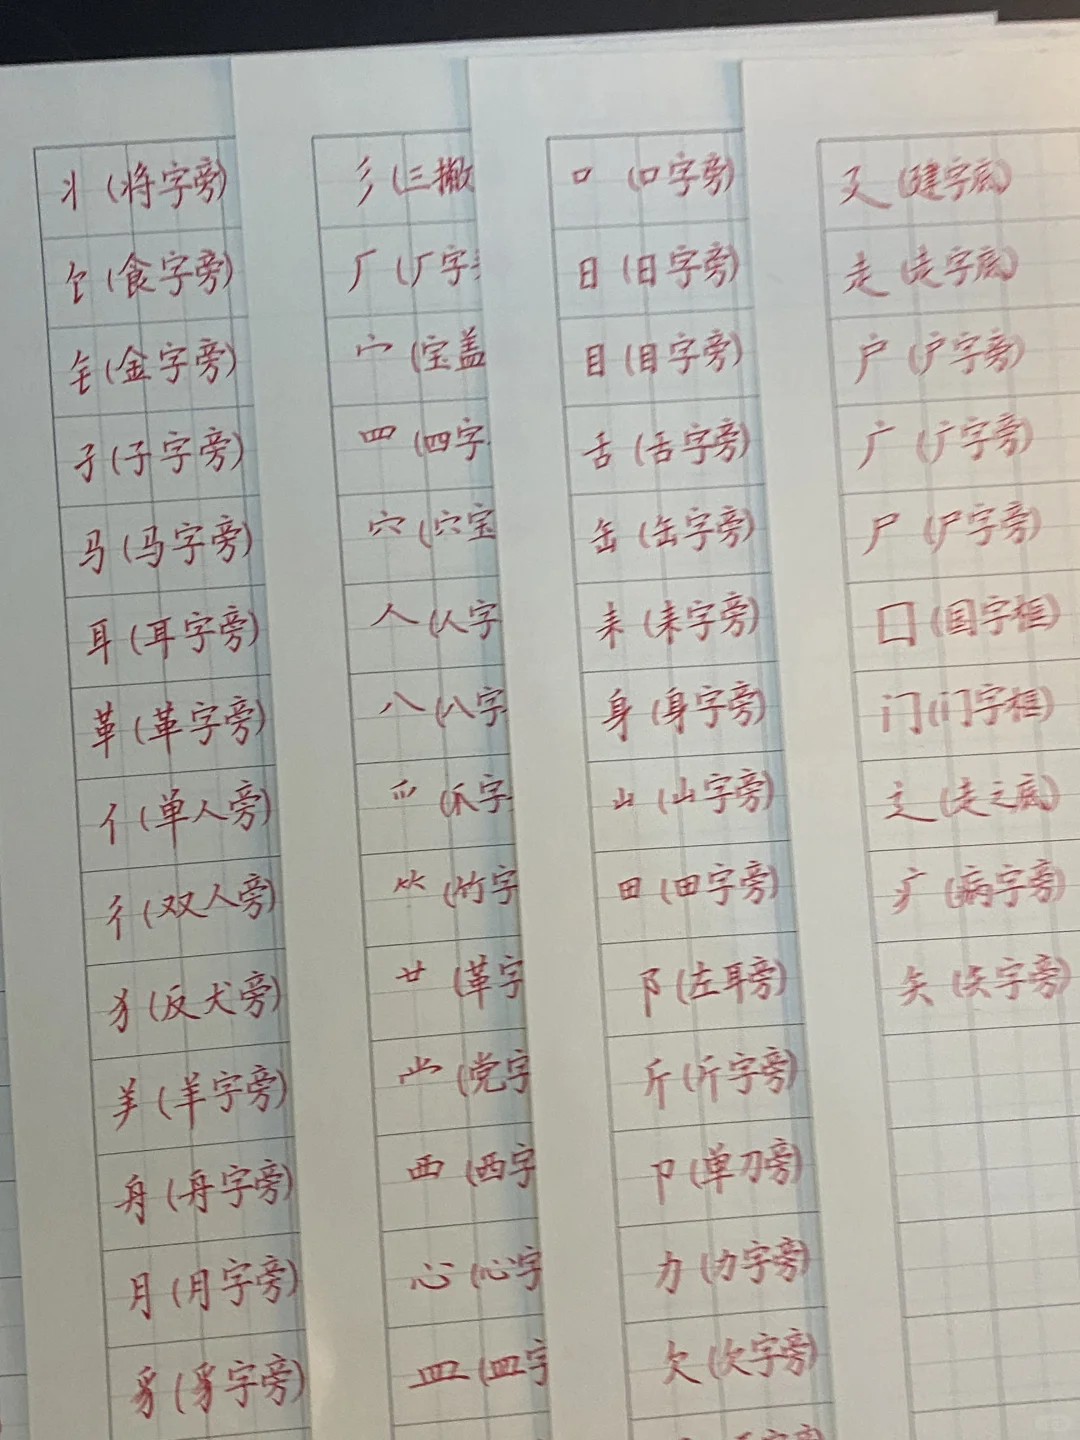 丬(将字旁)
饣(食字旁)
钅(金字旁)
孑(子字旁)
马(马字旁)
耳(耳字旁)
革(革字旁)
亻(单人旁)
彳(双人旁)
犭(反犬旁)
羊(羊字旁)
舟(舟字旁)
月(月字旁)
豸(豸字旁)
彡(三撇
厂(厂字
宀(宝盖
罒(四字
穴(穴宝
人(人字
八(八字
爫(爪字
⺮(竹字
廿(革字
龸(党字
西(西字
心(心字
皿(皿字
口(口字旁)
日(日字旁)
目(目字旁)
舌(舌字旁)
缶(缶字旁)
耒(耒字旁)
身(身字旁)
山(山字旁)
田(田字旁)
阝(左耳旁)
斤(斤字旁)
卩(单刀旁)
力(力字旁)
欠(欠字旁)
廴(建字底)
走(走字底)
户(户字旁)
广(广字旁)
尸(尸字旁)
囗(国字框)
门(门字框)
辶(走之底)
疒(病字旁)
矢(矢字旁)